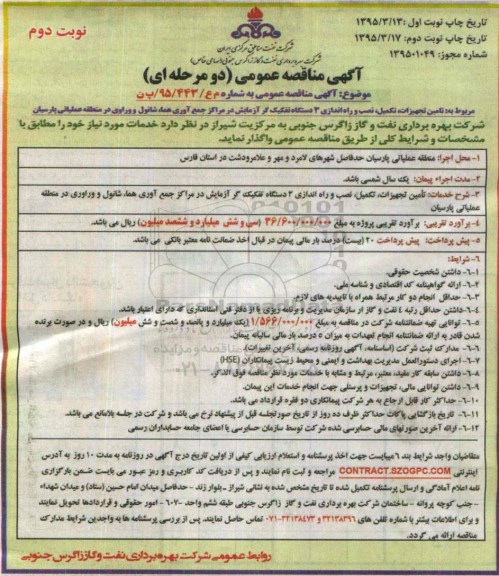 تاریخ چاپ نوبت اول: ۱۳۹۵/۳/۱۳
تاریخ چاپ نوبت دوم: ۱۳۹۵/۳/۱۷
شماره مجوز: ۱۳۹۵۰۱۰۴۹
نوبت دوم
شرکت نفت مناطق مرکزی ایران
شرکت بهره برداری نفت و گاز زاگرس جنوبی (سهامی خاص)
آگهی مناقصه عمومی (دو مرحله ای)
موضوع: آگهی مناقصه عمومی به شماره م ع/۹۵/۴۴۳/ب ن
مربوط به: تامین تجهیزات، تکمیل، نصب و راه اندازی ۳ دستگاه تفکیک گر آزمایش در مراکز جمع آوری هما، شانول و وراوی در منطقه عملیاتی پارسیان
شرکت بهره برداری نفت و گاز زاگرس جنوبی به مرکزیت شیراز در نظر دارد خدمات مورد نیاز خود را مطابق با
مشخصات و شرایط کلی از طریق مناقصه عمومی واگذار نماید.
۱- محل اجرا: منطقه عملیاتی پارسیان حدفاصل شهرهای لامرد و مهر و علامرودشت در استان فارس
۲- مدت اجراء پیمان: یک سال شمسی باشد.
۳- شرح خدمات: تأمین تجهیزات، تکمیل، نصب و راه اندازی ۳ دستگاه تفکیک گر آزمایش در مراکز جمع آوری هما، شانول و وراوی در منطقه
عملیاتی پارسیان
۴- برآورد تقریبی: برآورد تقریبی پروژه به مبلغ ۳۶/۶۰۰/۰۰۰/۰۰۰ (سی و شش میلیارد و ششصد میلیون) ریال می باشد.
۵- پیش پرداخت: پیش پرداخت ۲۰ (بیست) درصد بار مالی پیمان در قبال اخذ ضمانت نامه معتبر بانکی می باشد.
۶- شرایط:
۶-۱- داشتن شخصیت حقوقی.
۶-۲- ارائه گواهینامه کد اقتصادی و شناسه ملی.
۶-۳- حداقل انجام دو کار مرتبط همراه با تاییدیه های لازم.
۶-۴- داشتن حداقل رتبه ٤ نفت و گاز از سازمان مدیریت و برنامه ریزی یا از دفتر فنی استانداری که دارای اعتبار باشد.
۶-۵- توانایی تهیه ضمانتنامه شرکت در مناقصه به مبلغ ۱/۵۶۶/۰۰۰/۰۰۰ (یک میلیارد و پانصد و شصت و شش میلیون) ریال و در صورت برنده
شدن قادر به ارائه ضمانتنامه انجام تعهدات به میزان ۵ درصد بار مالی سالیانه پیمان.
۶-۶- مدارک ثبت شرکت (اساسنامه، آگهی روزنامه رسمی، آخرین تغییرات).
۶-۷- اجرای دستورالعمل مدیریت بهداشت و ایمنی و محیط زیست پیمانکاران (HSE)
۶-۸- داشتن سابقه کار مفید، معتبر، مرتبط و مشابه با خدمات مورد نظر مناقصه فوق الذکر.
۶-۹- داشتن توانایی مالی، تجهیزات و پرسنلی جهت انجام خدمات این پیمان.
۶-۱۰- حداکثر کار قابل ارجاع به هر شرکت پیمانکاری دو فقره قرارداد می باشد.
۶-۱۱- تاریخ بازگشایی پاکات حداکثر ظرف ده روز از تاریخ صورتجلسه قبل از پیشنهاد نرخ می باشد و شرکت در جلسه بلامانع می باشد.
۶-۱۲- ارائه آخرین صورتهای مالی حسابرسی شده شرکت توسط سازمان حسابرسی یا اعضای جامعه حسابداران رسمی
متقاضیان واجد شرایط بند ۶ میبایست جهت اخذ پرسشنامه و استعلام ارزیابی کیفی از اولین تاریخ درج آگهی در روزنامه به مدت ۱۰ روز به آدرس
اینترنتی CONTRACT.SZOGPC.COM مراجعه و ثبت نام نمایند و پس از دریافت کد کاربری و رمز عبور می بایست ضمن بارگزاری
نامه اعلام آمادگی و ارسال پرسشنامه تکمیل شده تا تاریخ مشخص شده به نشانی شیراز - بلوار زند - حدفاصل میدان امام حسین (ستاد) و میدان شهداء
- جنب کوچه پروانه - ساختمان شرکت بهره برداری نفت و گاز زاگرس جنوبی طبقه ششم واحد ۶۰۷ - امور حقوقی و قراردادها تحویل نمایند
و برای اطلاعات بیشتر با شماره تلفن های ۳۲۱۳۸۳۹۶ و ۳۲۱۳۸۴۷۳-۰۷۱ تماس حاصل نمایند. پس از بررسی پرسشنامه ها به واجدین شرایط مدارک
مناقصه ارائه می گردد.
روابط عمومی شرکت بهره برداری نفت و گاز زاگرس جنوبی